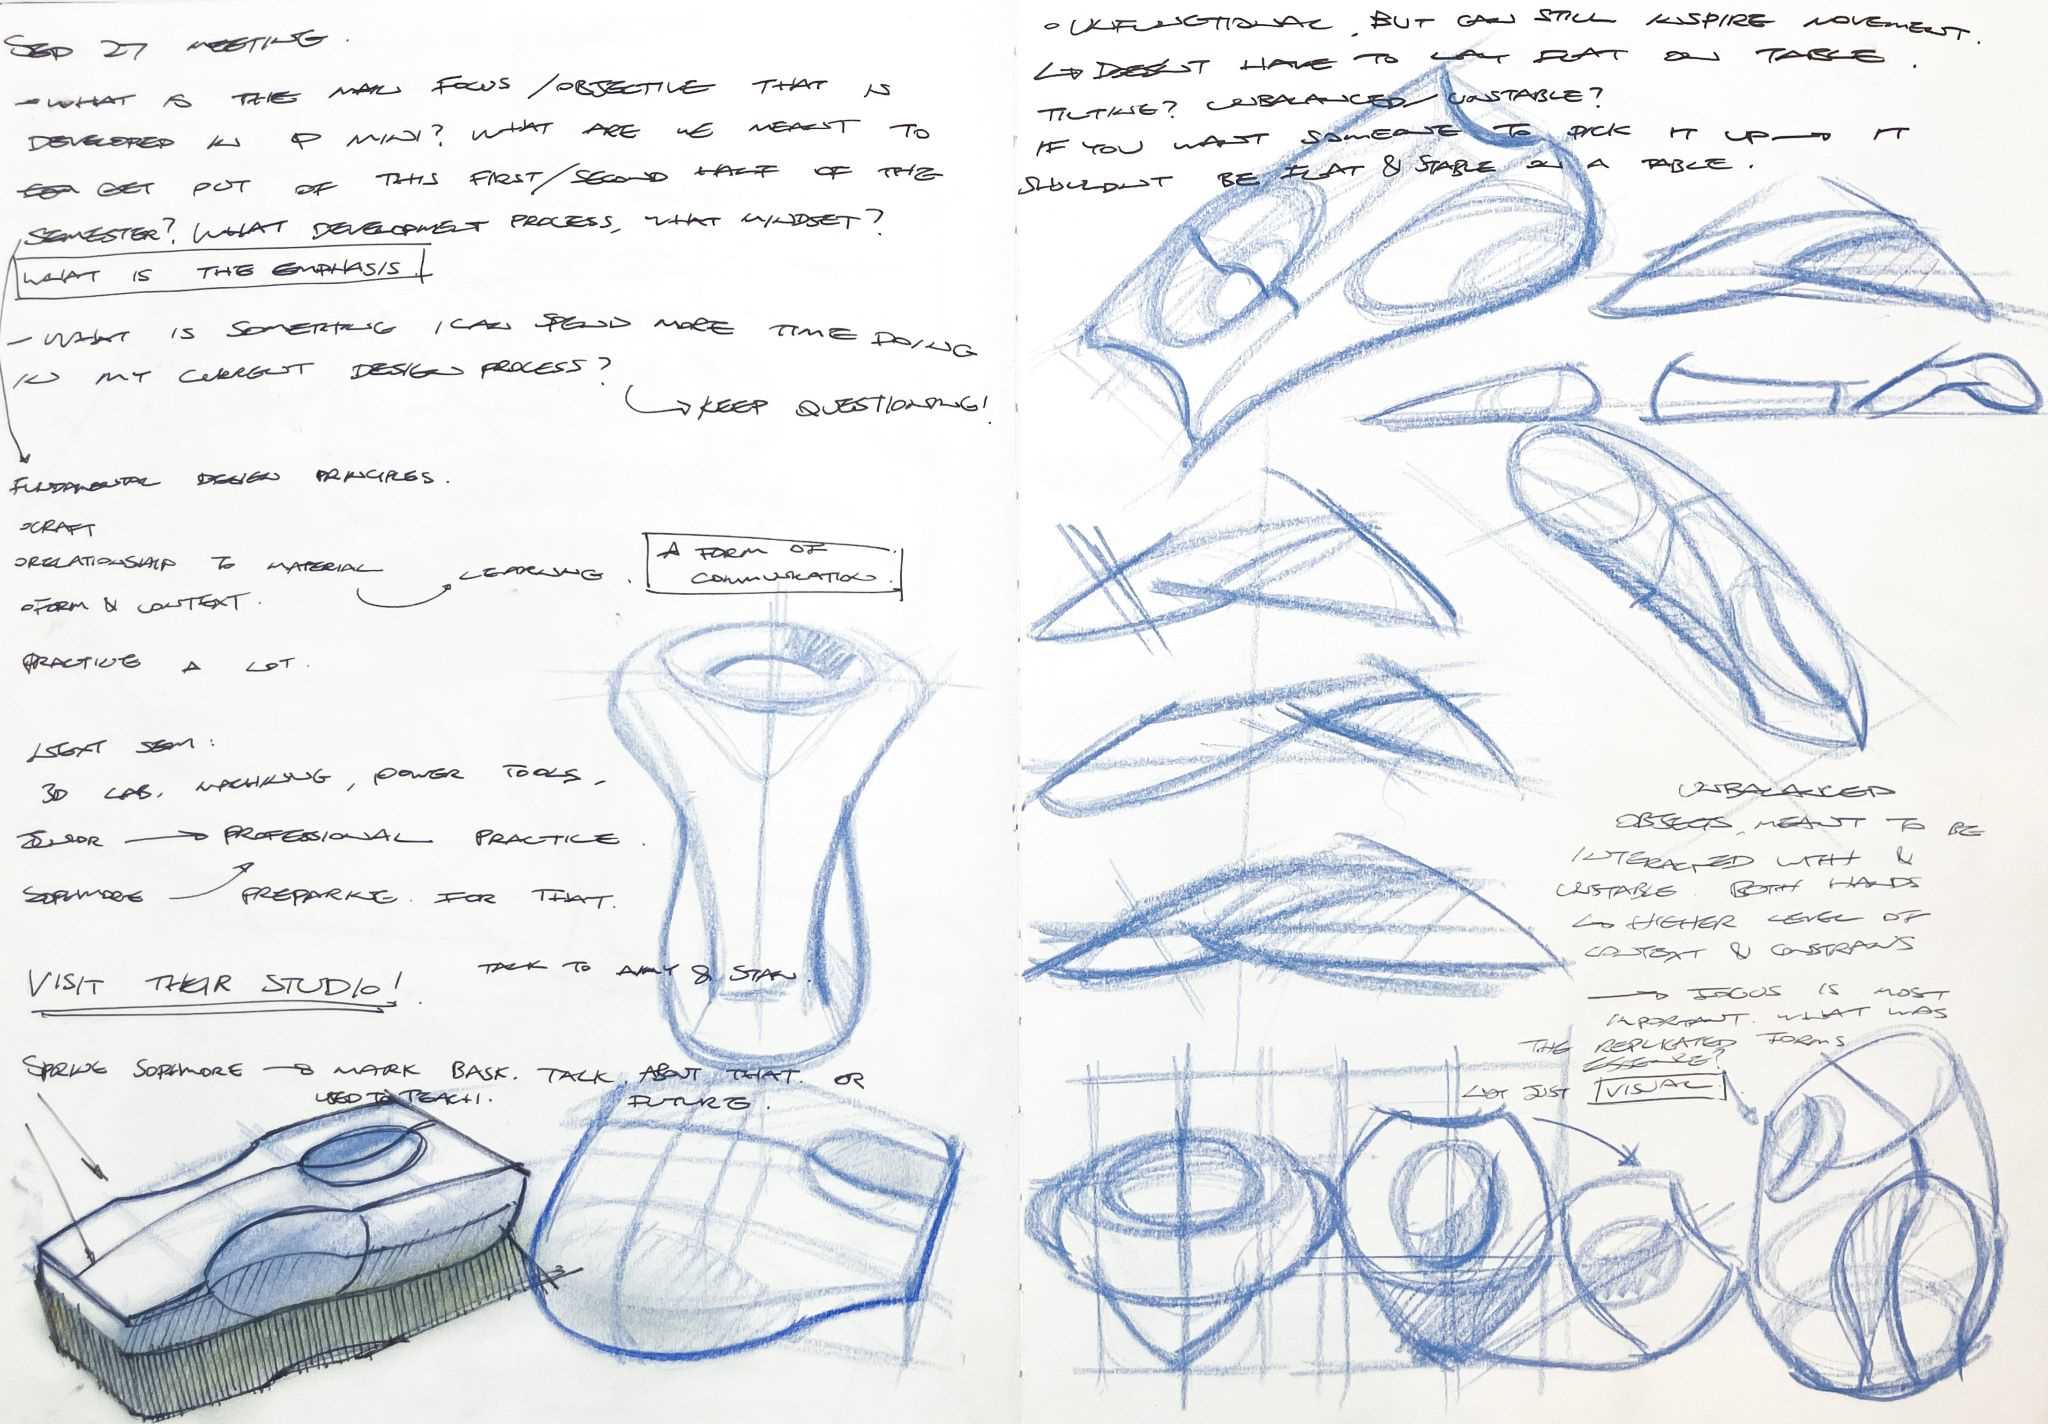 SEP 27 MEETING.
- WHAT IS THE MAIN FOCUS/OBJECTIVE THAT IS
DEVELOPED IN MINI? WHAT ARE WE MEANT TO
GET OUT OF THIS FIRST/SECOND HALF OF THE
SEMESTER? WHAT DEVELOPMENT PROCESS, WHAT MINDSET?
WHAT IS THE EMPHASIS
- WHAT IS SOMETHING I CAN SPEND MORE TIME DOING
IN MY CURRENT DESIGN PROCESS?
→ KEEP QUESTIONING!
FUNDAMENTAL DESIGN PRINCIPLES.
CRAFT
RELATIONSHIP TO MATERIAL → LEARNING.
FORM & CONTEXT.
A FORM OF
COMMUNICATION.
PRACTICE A LOT.
NEXT SEM:
3D LAB, MACHINING, POWER TOOLS,
JUNIOR → PROFESSIONAL PRACTICE.
SOPHMORE → PREPARING FOR THAT.
VISIT THEIR STUDIO!
TALK TO & STAN.
SPRING SOPHMORE → MARK BASK. TALK ABOUT THAT. OR
USED TO TEACH. FUTURE.
• UNFUNCTIONAL, BUT CAN STILL INSPIRE MOVEMENT.
↳ DOESN'T HAVE TO LAY FLAT ON TABLE.
TILTING? UNBALANCED/UNSTABLE?
IF YOU WANT SOMEONE TO PICK IT UP → IT
SHOULDNT BE FLAT & STABLE ON A TABLE.
UNBALANCED
OBJECTS, MEANT TO BE
INTERACTED WITH &
UNSTABLE. BOTH HANDS
↳ HIGHER LEVEL OF
CONTEXT & CONSTRAINS
→ FOCUS IS MOST
IMPORTANT. WHAT WAS
THE REPLICATED FORMS
ESSENCE?
NOT JUST VISUAL